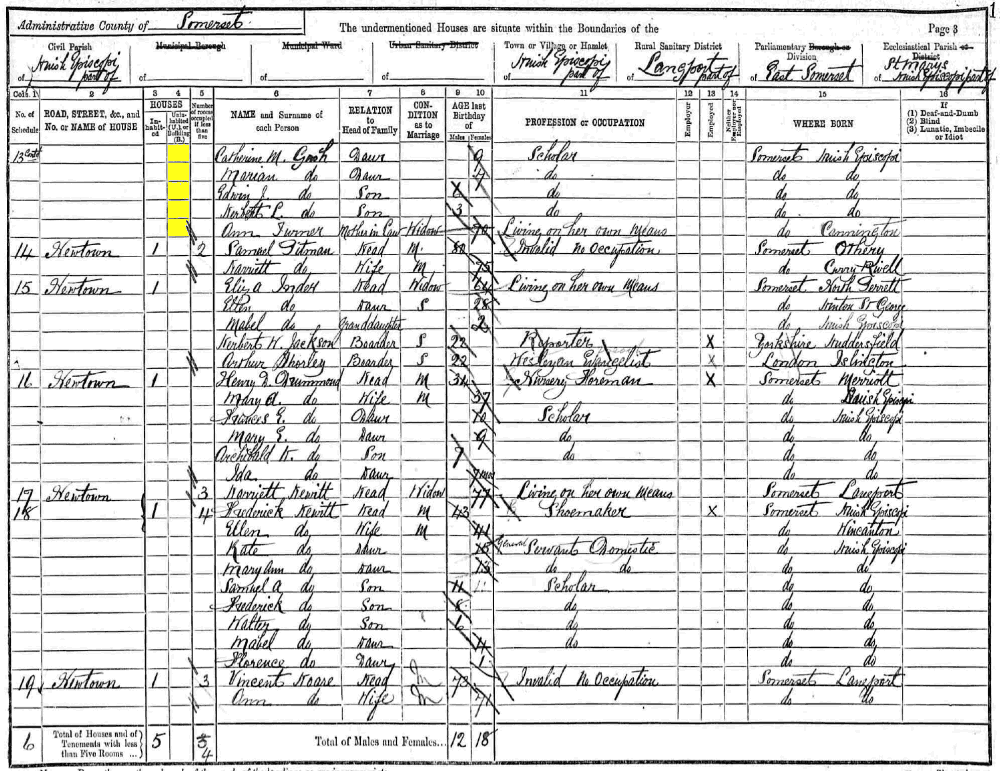 1
Administrative County of Somerset
The undermentioned Houses are situate within the Boundaries of the
Page 3
Civil Parish
Municipal Borough
Municipal Ward
Urban Sanitary District
Town or Village or Hamlet
Rural Sanitary District
Parliamentary Borough or Division
Ecclesiastical Parish or District
of Muish Episcopi part of
of
of
of
of Muish Episcopi part of
of Langport part of
of East Somerset
of St Marys Muish Episcopi part of
Cols. 1 2 3 4 5 6 7 8 9 10 11 12 13 14 15 16
No. of Schedule
ROAD, STREET, &c., and No. or NAME of HOUSE
HOUSES
Inhabited
Uninhabited (U.), or Building (B.)
Number of rooms occupied if less than five
NAME and Surname of each Person
RELATION to Head of Family
CONDITION as to Marriage
AGE last Birthday of
Males Females
PROFESSION or OCCUPATION
Employer
Employed
Neither Employer nor Employed
WHERE BORN
If (1) Deaf-and-Dumb (2) Blind (3) Lunatic, Imbecile or Idiot
13 Contd Catherine M. Gosh Daur 9 Scholar Somerset Muish Episcopi
Marian do Daur 4 do do do
Edwin J. do Son do do do
Herbert L. do Son 3 do do do
Ann Turner Mother in Law Widow 70 Living on her own Means do Cannington
14 Newtown 1 2 Samuel Pitman Head M. 80 Invalid No Occupation Somerset Othery
Harriett do Wife M 75 do Curry Rivell
15 Newtown 1 Eliza Inder Head Widow 64 Living on her own Means Somerset North Perrett
Ellen do Daur S 28 do Hinton St George
Mabel do Granddaughter 2 do Muish Episcopi
Herbert W. Jackson Boarder S 22 Reporter X Yorkshire Huddersfield
Arthur Shorley Boarder S 22 Wesleyan Evangelist X London Islington
16 Newtown 1 Henry D. Drummond Head M 34 Nursery Foreman X Somerset Merriott
Mary A. do Wife M 37 do Muish Episcopi
Frances E. do Daur 10 Scholar do Muish Episcopi
Mary E. do Daur 9 do do do
Archibald K. do Son 7 do do do
Ida do Daur 7 mos do do
17 Newtown 3 Harriett Hewitt Head Widow 77 Living on her own Means Somerset Langport
18 1 4 Frederick Hewitt Head M 43 Shoemaker X Somerset Muish Episcopi
Ellen do Wife M 41 do Wincanton
Kate do Daur 15 General Servant Domestic do Muish Episcopi
Mary Ann do Daur 13 do do do do
Samuel A do Son 11 Scholar do do
Frederick do Son 8 do do do
Walter do Son 6 do do do
Mabel do Daur 4 do do do
Florence do Daur 1 do do
19 Newtown 1 3 Vincent Hoare Head M 73 Invalid No Occupation Somerset Langport
Ann do Wife M 71 do do
6 Total of Houses and of Tenements with less than Five Rooms ... 5 3 4 Total of Males and Females... 12 18